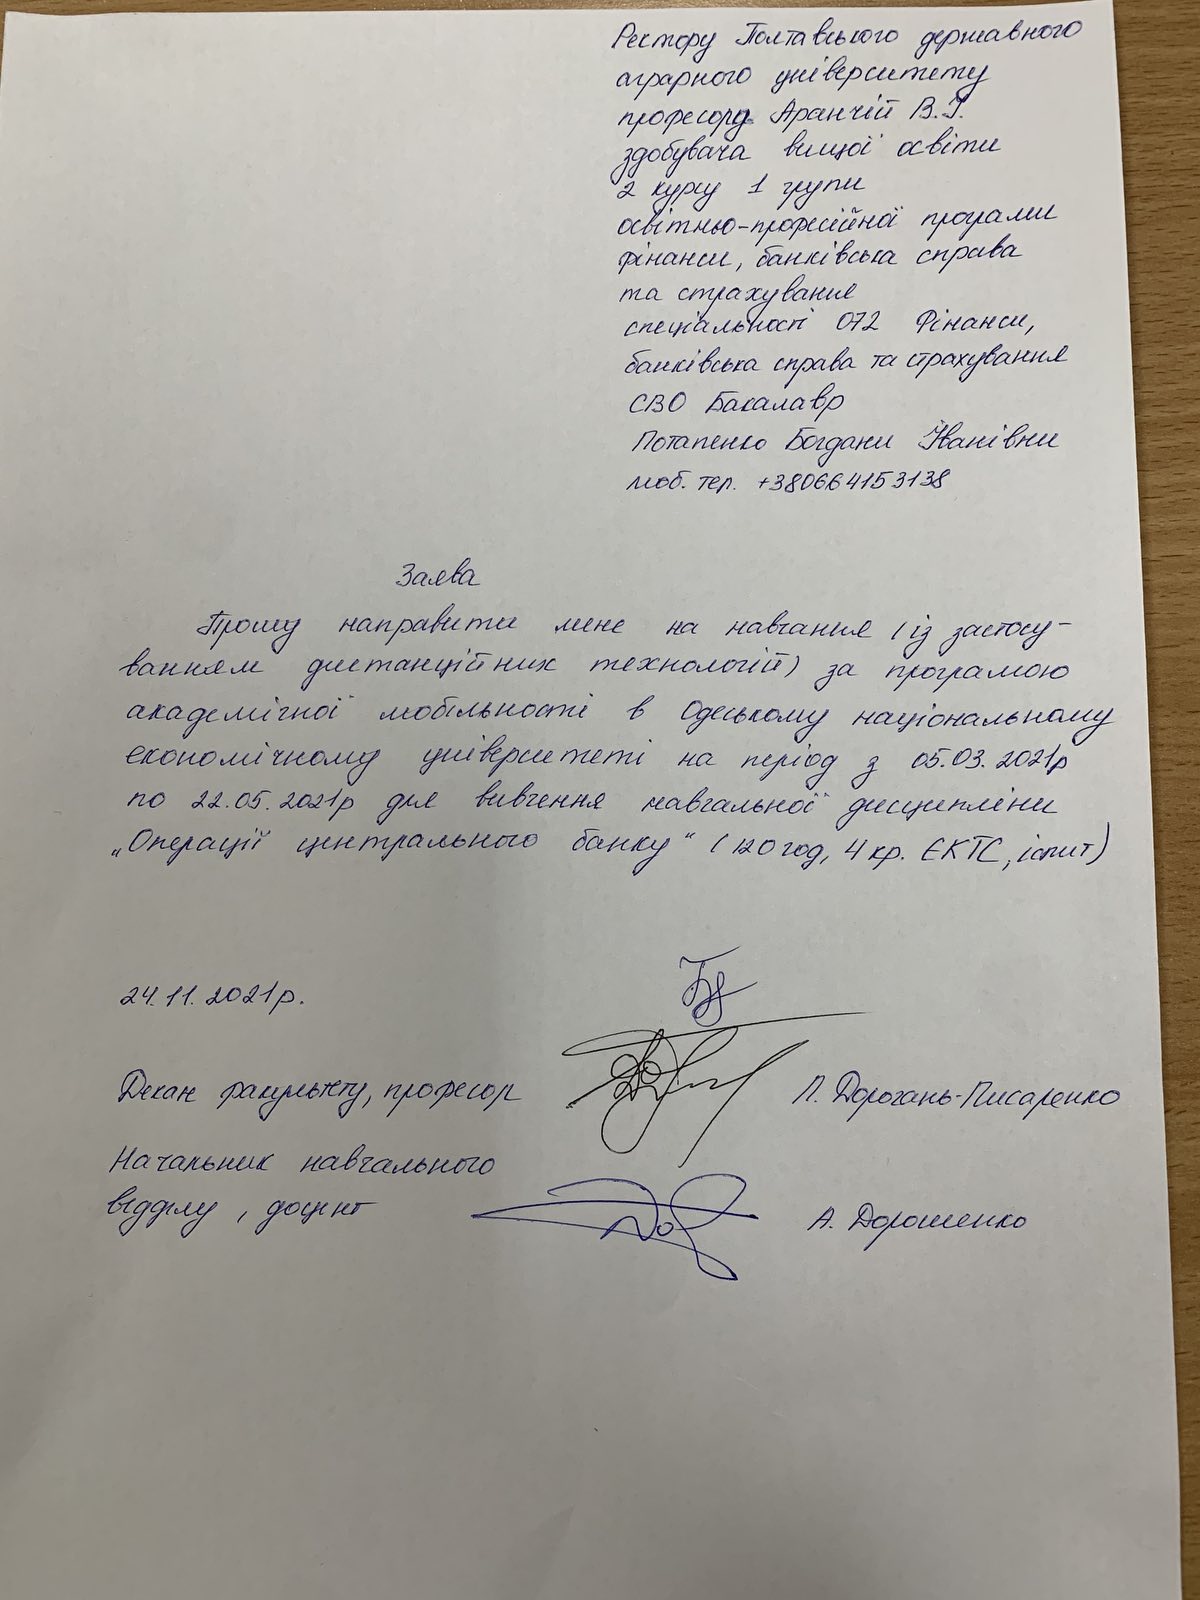 Ректору Полтавського державного
аграрного університету
професору Аранчій В.І.
здобувача вищої освіти
2 курсу 1 групи
освітньо-професійної програми
фінанси, банківська справа
та страхування
спеціальності 072 Фінанси,
банківська справа та страхування
СВО Бакалавр
Потапенко Богдани Іванівни
моб. тел. +380664153138
Заява
Прошу направити мене на навчання (із застосу-
ванням дистанційних технологій) за програмою
академічної мобільності в Одеському національному
економічному університеті на період з 05.03.2021р
по 22.05.2021р для вивчення навчальної дисципліни
„Операції центрального банку“ (120 год, 4 кр. ЄКТС, іспит)
24.11.2021р.
Декан факультету, професор Л. Дорогань-Писаренко
Начальник навчального
відділу, доцент А. Дорошенко